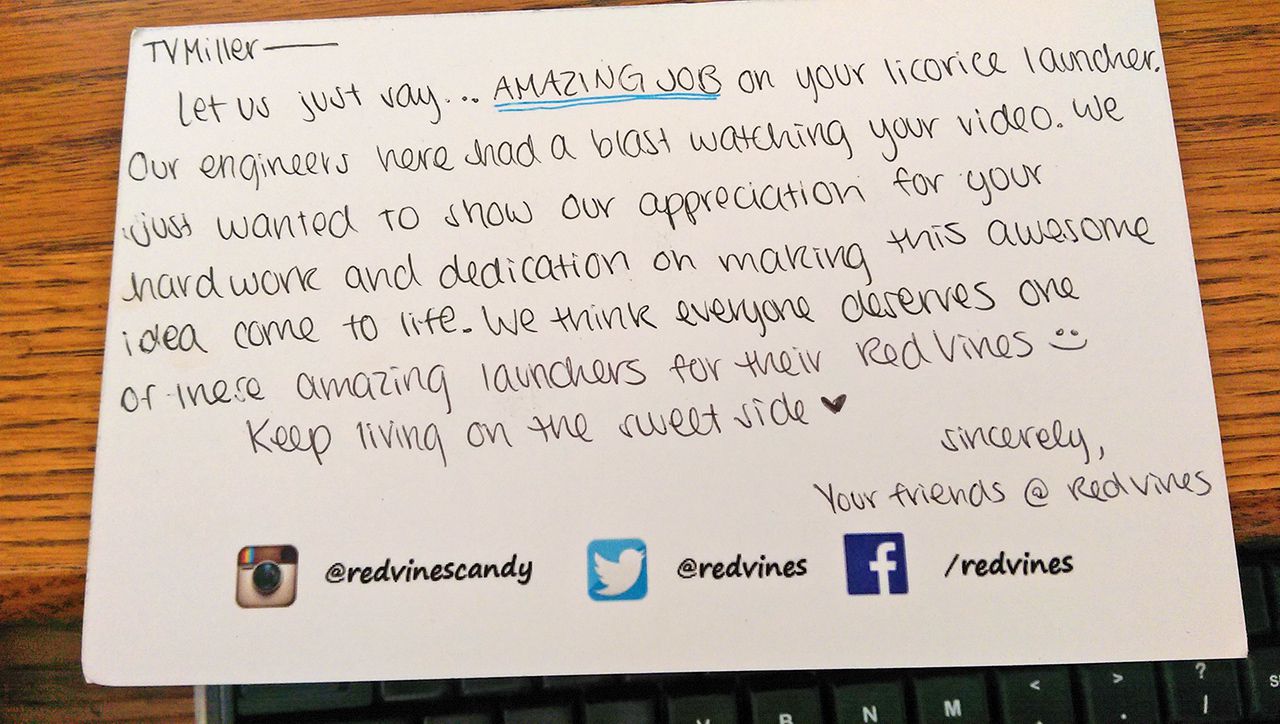 TVMiller—
Let us just say... AMAZING JOB on your licorice launcher.
Our engineers here had a blast watching your video. We
just wanted to show our appreciation for your
hard work and dedication on making this awesome
idea come to life. We think everyone deserves one
of these amazing launchers for their Red Vines :)
Keep living on the sweet side ♥
sincerely,
Your friends @ Redvines
@redvinescandy @redvines f /redvines
V B N M < > ? /